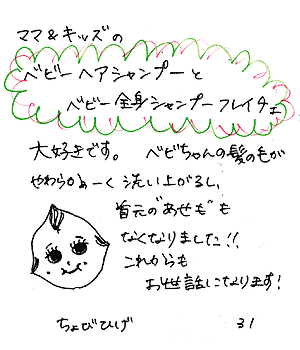 ママ&キッズの
ベビーヘアシャンプーと
ベビー全身シャンプーフレイチェ
大好きです。 ベビちゃんの髪の毛が
やわらかぁーく洗い上がるし、
首元の"あせも"も
なくなりました!!
これからも
お世話になります!
ちょびひげ 31